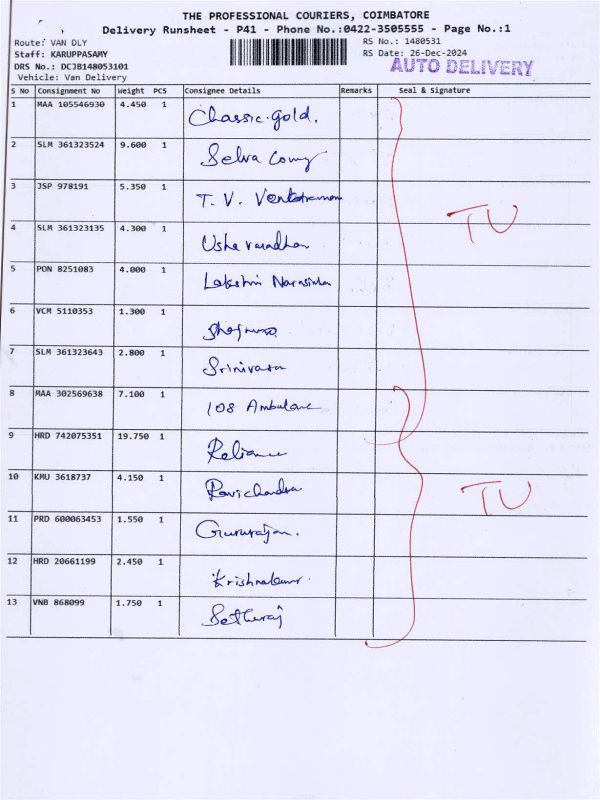 THE PROFESSIONAL COURIERS, COIMBATORE
Delivery Runsheet - P41 - Phone No.:0422-3505555 - Page No.:1
Route: VAN DLY RS No.: 1480531
Staff: KARUPPASAMY RS Date: 26-Dec-2024
DRS No.: DCJB148053101 AUTO DELIVERY
Vehicle: Van Delivery
S No Consignment No Weight PCS Consignee Details Remarks Seal & Signature
1 MAA 105546930 4.450 1 Classic gold.
2 SLM 361323524 9.600 1 Selva
3 JSP 978191 5.350 1 T. V. Venkatraman
TU
4 SLM 361323135 4.300 1 Usha varadhan
5 PON 8251083 4.000 1 Lakshmi Narasimhan
6 VCM 5110353 1.300 1
7 SLM 361323643 2.800 1 Srinivasan
8 MAA 302569638 7.100 1 108 Ambulance
9 HRD 742075351 19.750 1 Reliance
10 KMU 3618737 4.150 1 Ravichandra
TU
11 PRD 600063453 1.550 1 Gururajan.
12 HRD 20661199 2.450 1 Krishnakumar.
13 VNB 868099 1.750 1 Sethuraj